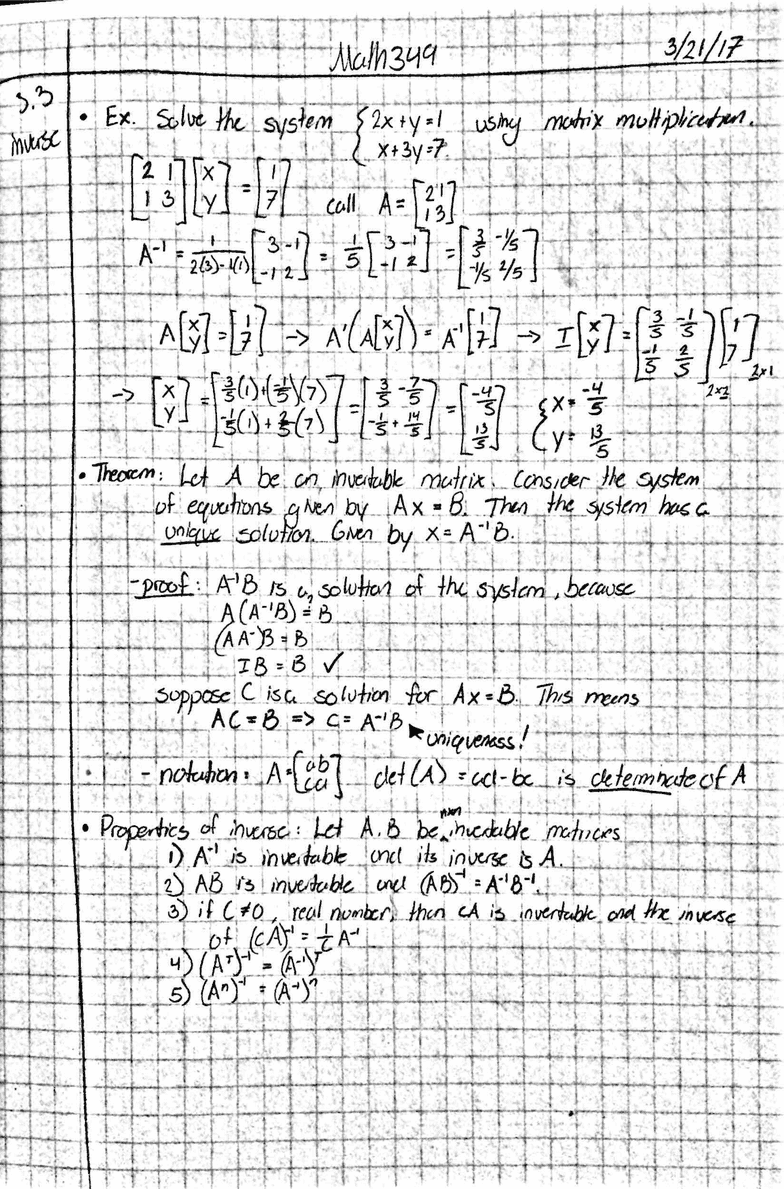 Math 349 3/21/17
3.3
inverse
• Ex. Solve the system { 2x+y=1 using matrix multiplication.
x+3y=7
[2 1; 1 3] [x; y] = [1; 7] call A = [2 1; 1 3]
A⁻¹ = 1/(2(3)-1(1)) [3 -1; -1 2] = 1/5 [3 -1; -1 2] = [3/5 -1/5; -1/5 2/5]
A[x; y] = [1; 7] → A'(A[x; y]) = A⁻¹[1; 7] → I[x; y] = [3/5 -1/5; -1/5 2/5] 2x2 [1; 7] 2x1
→ [x; y] = [3/5(1)+(-1/5)(7); -1/5(1)+2/5(7)] = [3/5 - 7/5; -1/5 + 14/5] = [-4/5; 13/5] { x = -4/5
y = 13/5
• Theorem: Let A be an invertable matrix. Consider the system
of equations given by Ax = B. Then the system has a
unique solution. Given by x = A⁻¹B.
-proof: A⁻¹B is a solution of the system, because
A(A⁻¹B) = B
(AA⁻)B = B
IB = B ✓
suppose C is a solution for Ax = B. This means
AC = B => C = A⁻¹B
uniqueness!
- notation: A = [a b; c d] det(A) = ad-bc is determinate of A
• Properties of inverse: Let A, B be nxn invertable matrices
1) A⁻¹ is invertable and its inverse is A.
2) AB is invertable and (AB)⁻¹ = A⁻¹B⁻¹.
3) if C ≠ 0, real number, then cA is invertable and the inverse
of (cA)⁻¹ = 1/c A⁻¹
4) (Aᵀ)⁻¹ = (A⁻¹)ᵀ
5) (Aⁿ)⁻¹ = (A⁻¹)ⁿ